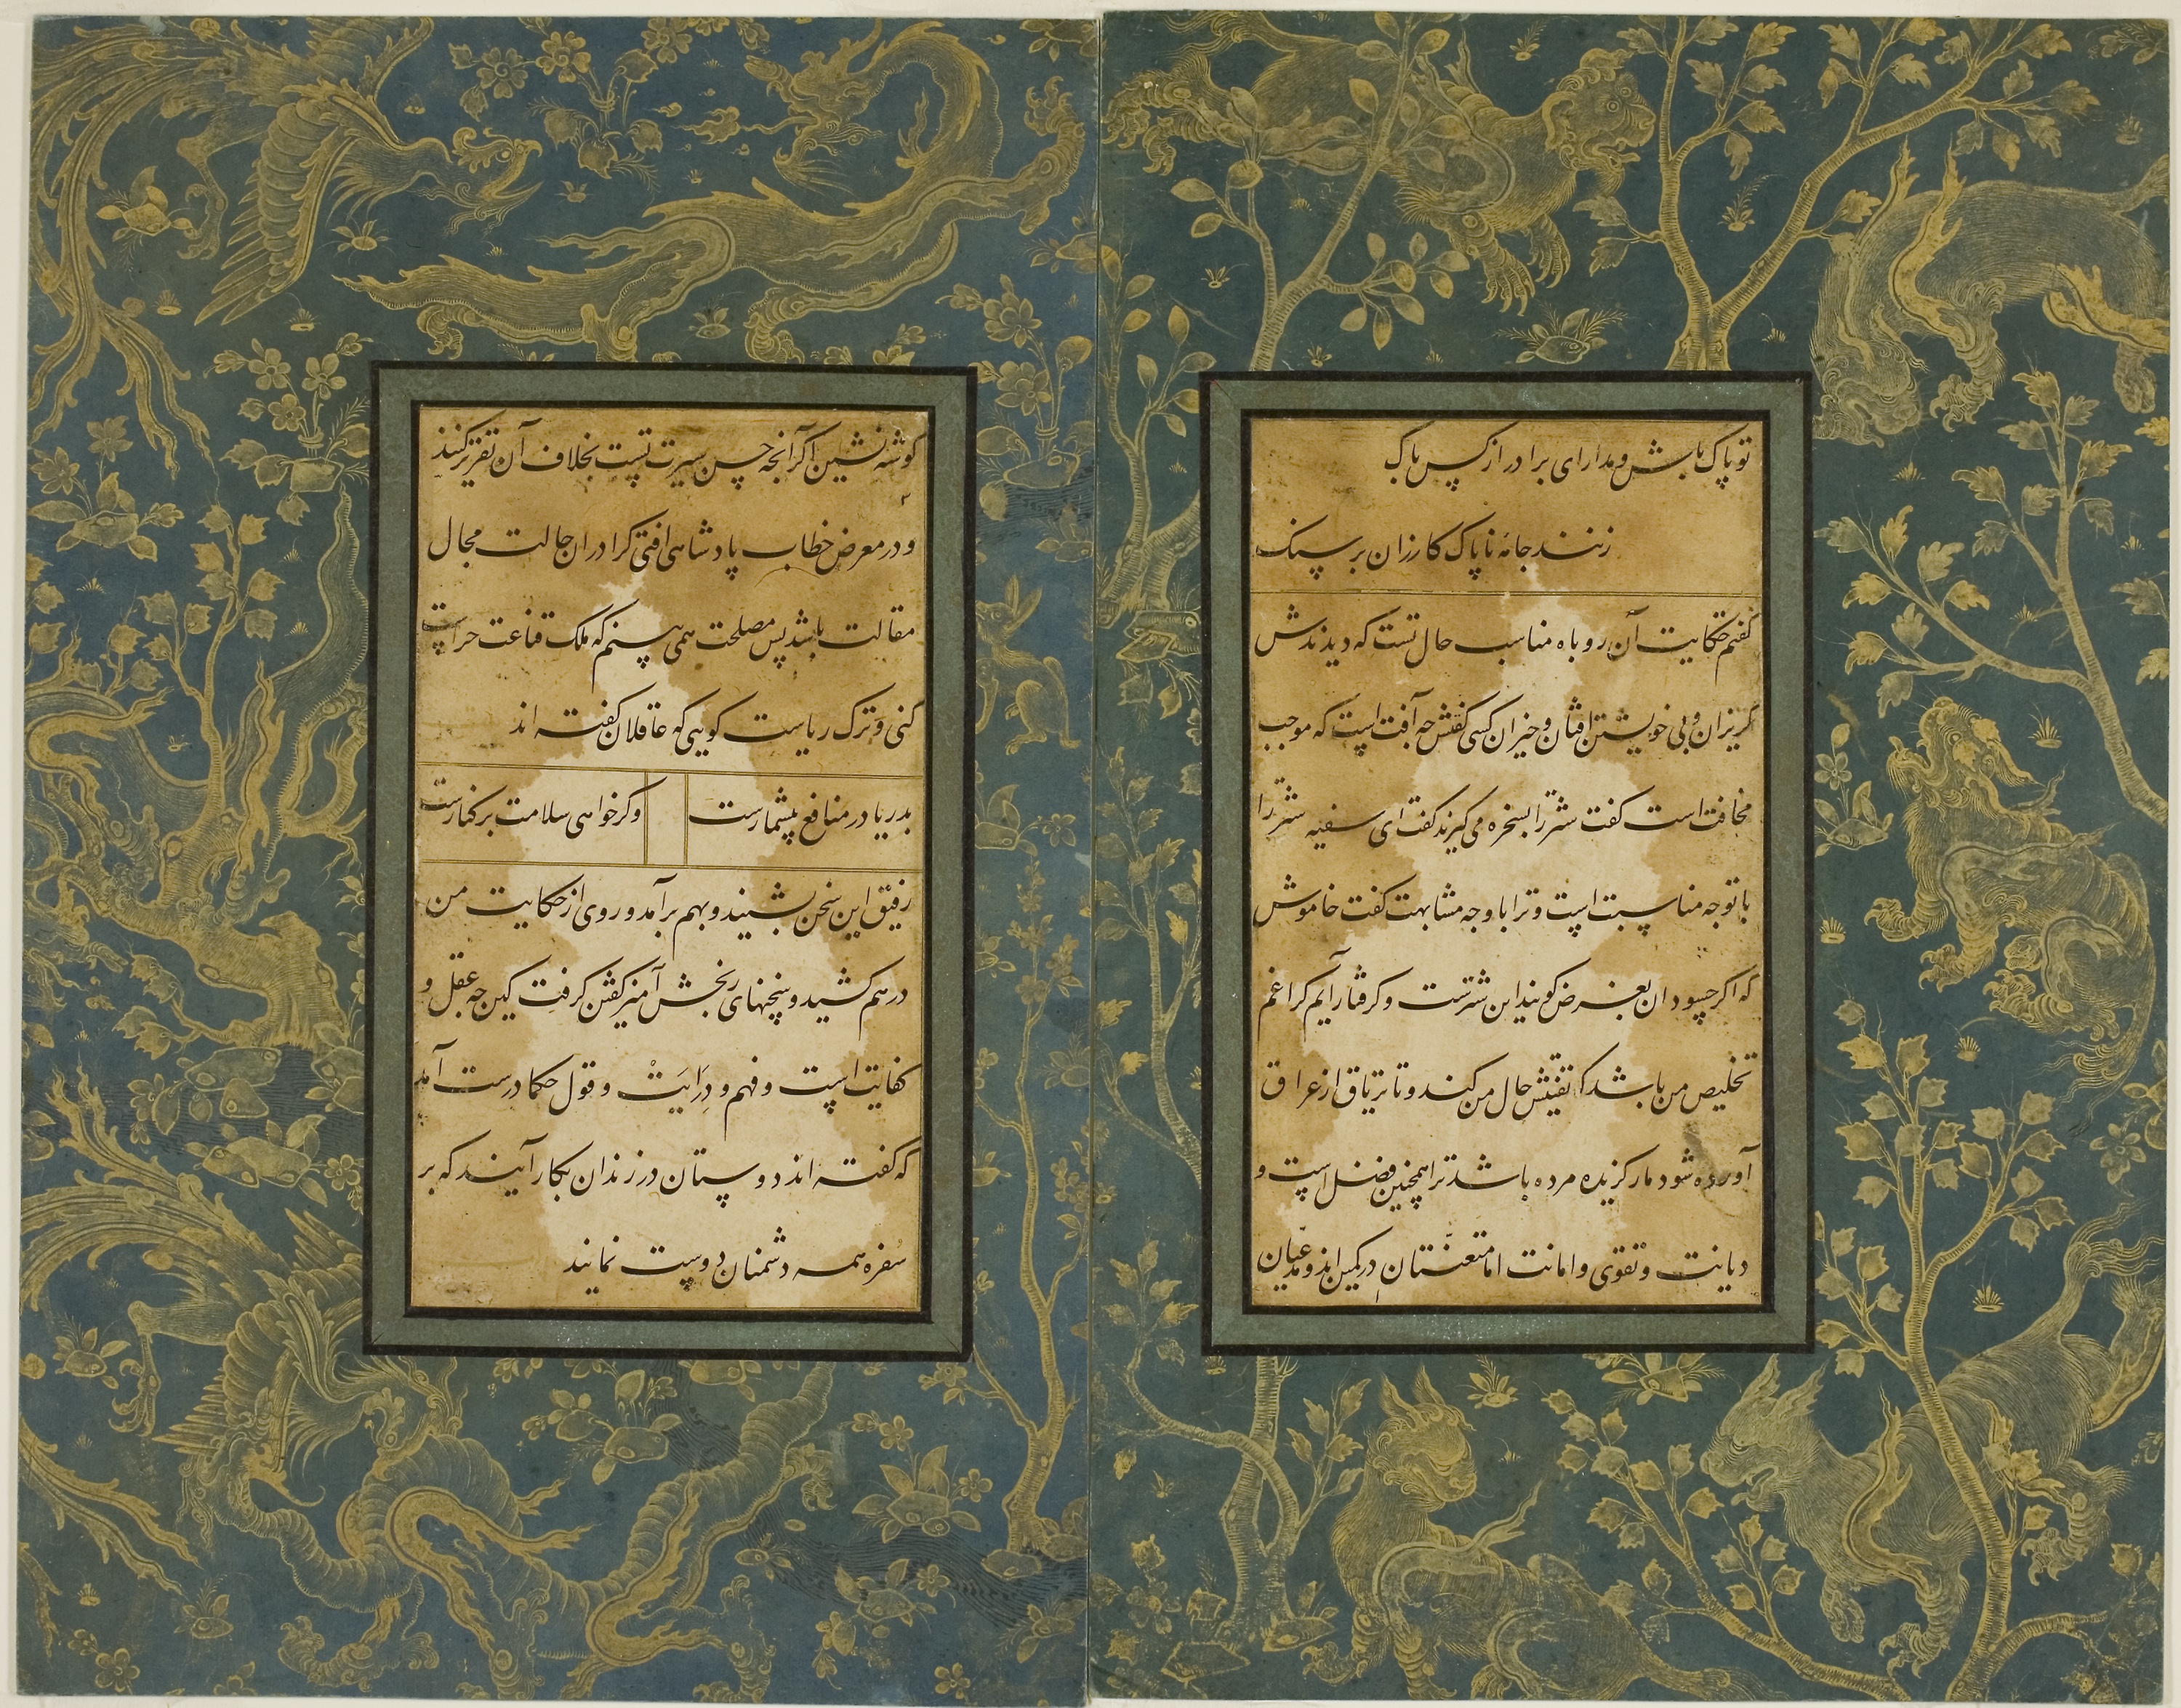 تو پاک باش و مدار ای برادر از کس باک
زنند جامه ناپاک کازران بر سنک
کفتم حکایت آن روباه مناسب حال تست که دیدندش
کریزان و بی خویشتن افتان و خیزان کسی کفتش چه آفت است که موجب
مخافت است کفت شتر را بسخره می کیرند کفت ای سفیه شتر را
با تو چه مناسبت است و ترا با او چه مشابهت کفت خاموش
که اکر حسودان بغرض کویند این شترست و کرفتار آیم کرا غم
تخلیص من باشد که تفتیش حال من کند و تا تریاق از عراق
آورده شود مار کزیده مرده باشد ترا همچنین فضل است و
دیانت و تقوی و امانت اما متعنتان در کمین اند و مدعیان
کوشه نشین اکر آنچه حسن سیرت تست بخلاف آن تقریر کنند
و در معرض خطاب پادشاهی افتی کرا در آن حالت مجال
مقالت باشد پس مصلحت همی بینم که ملک قناعت حراست
کنی و ترک ریاست کویی که عاقلان کفته اند
بدریا در منافع بیشمارست وکر خواهی سلامت بر کنارست
رفیق این سخن بشنید و بهم برآمد و روی از حکایت من
درهم کشید و سخنهای رنجش آمیز کفتن کرفت کین چه عقل و
کفایت است و فهم و درایت و قول حکما درست آمد
که کفته اند دوستان در زندان بکار آیند که بر
سفره همه دشمنان دوست نمایند